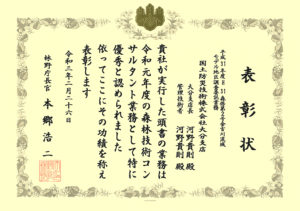 表彰状
平成31年度
国土防災技術株式会社大分支店
大分支店長 河野貴則殿
管理技術者 河野貴則殿
貴社が実行した頭書の業務は
令和元年度の森林技術コン
サルタント業務として特に
優秀と認められました
依ってここにその功績を称え
表彰します
令和三年二月二十六日
林野庁長官 本郷浩二